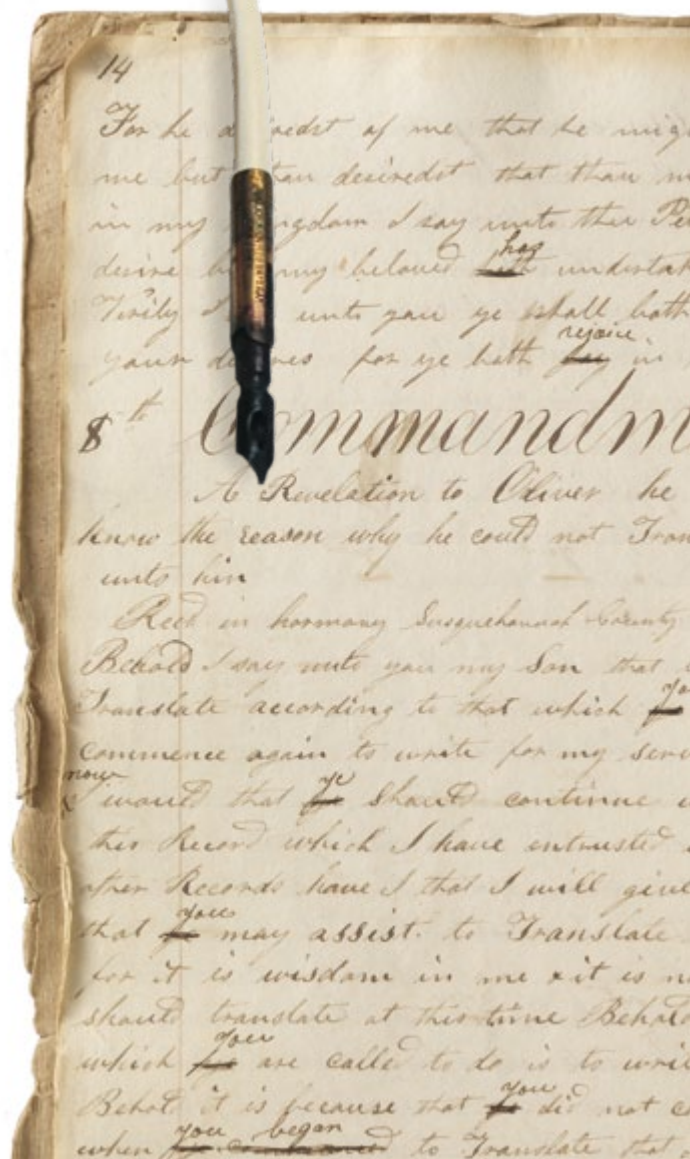 14
For he d redst of me that he mig
me but thou desiredst that thou m
in my ngdom I say unto thee Pe
desire b my beloved has undertak
Verily I unto you ye shall both
your d res for ye both rejoice in
8th Commandm
A Revelation to Oliver he
know the reason why he could not Tran
unto him
Recd in harmony Susquehannah County
Behold I say unto you my Son that
Translate according to that which you
commence again to write for my serv
now
I would that ye should continue
this Record which I have entrusted
other Records have I that I will give
that you may assist to Translate
for it is wisdom in me & it is n
should translate at this time Behold
which you are called to do is to wri
Behold it is because that you did not c
when you began commenced to Translate that